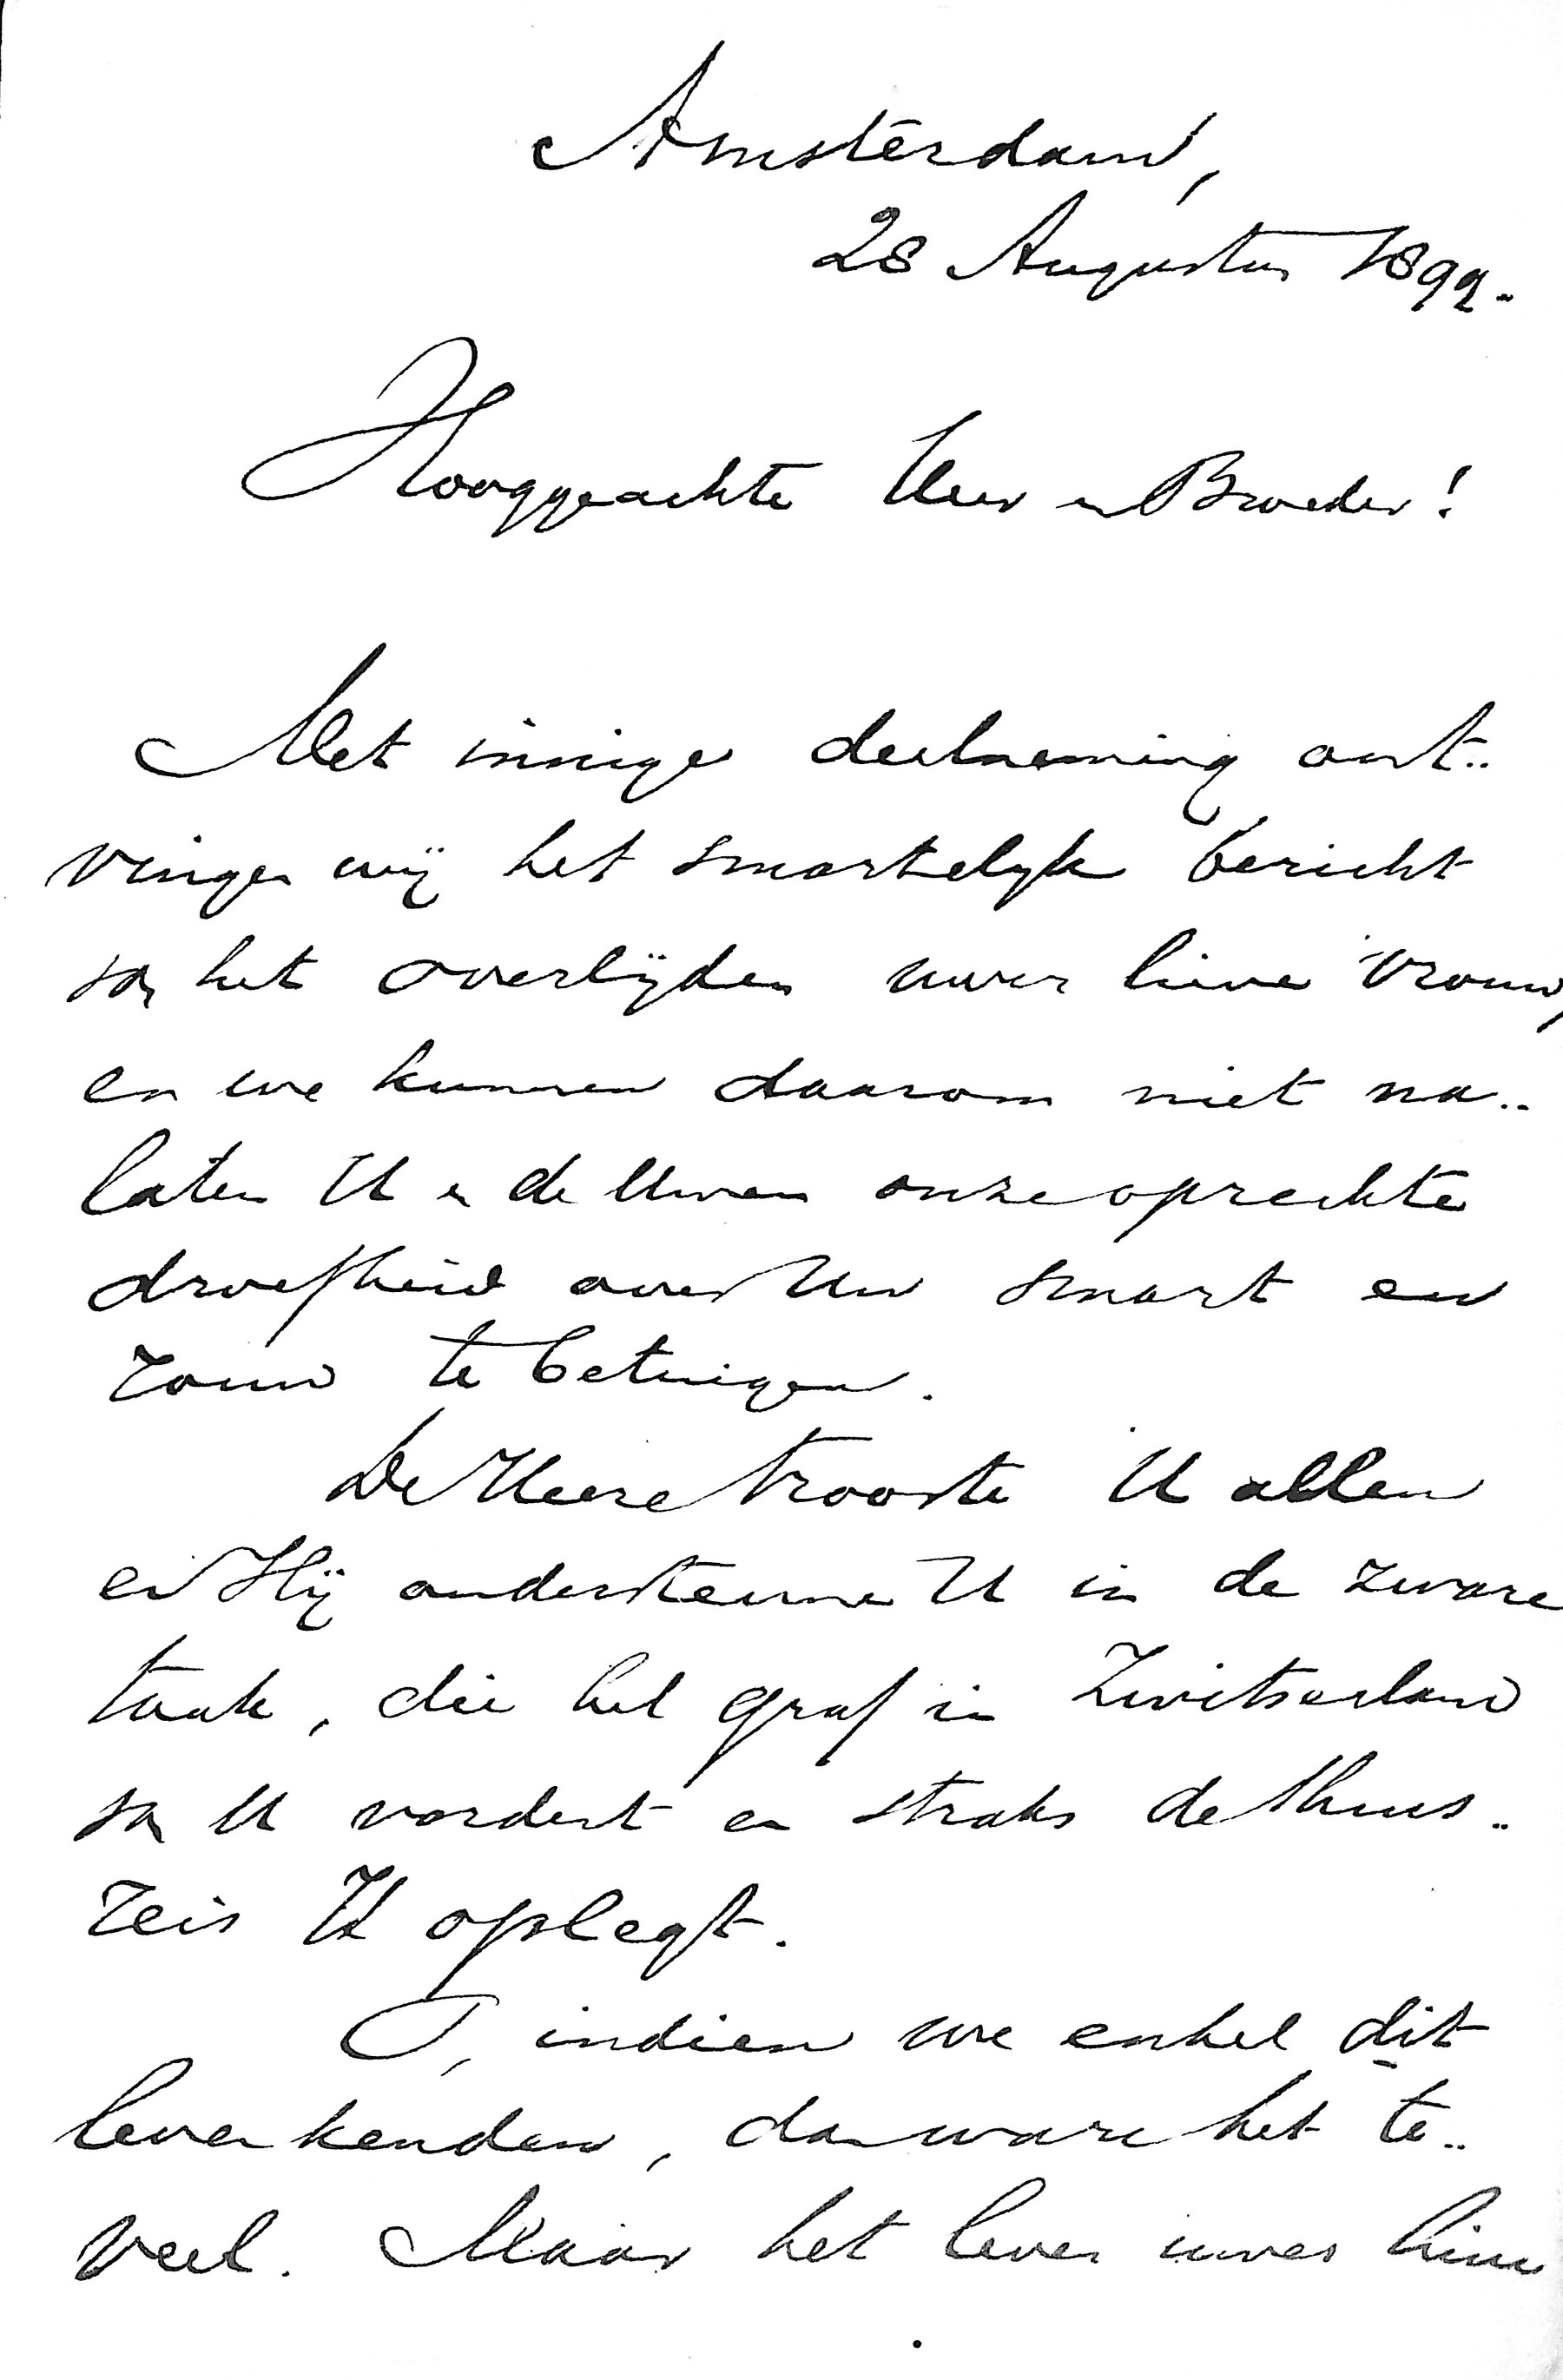 Amsterdam,
28 Augustus 1899.
Hooggeachte Heer en Broeder!
Met innige deelneming ont-
vingen wij het smartelijk bericht
van het overlijden uwer lieve vrouw,
en we kunnen daarom niet na-
laten U en de Uwen onze oprechte
droefheid over Uw smart en
rouw te betuigen.
De Heere trooste U allen
en Hij ondersteune U in de zware
taak, die het graf in Zwitserland
van U vordert en straks de thuis-
reis U oplegt.
O, indien we enkel dit
leven kenden, dan ware het te-
veel. Maar het leven uwer lieve